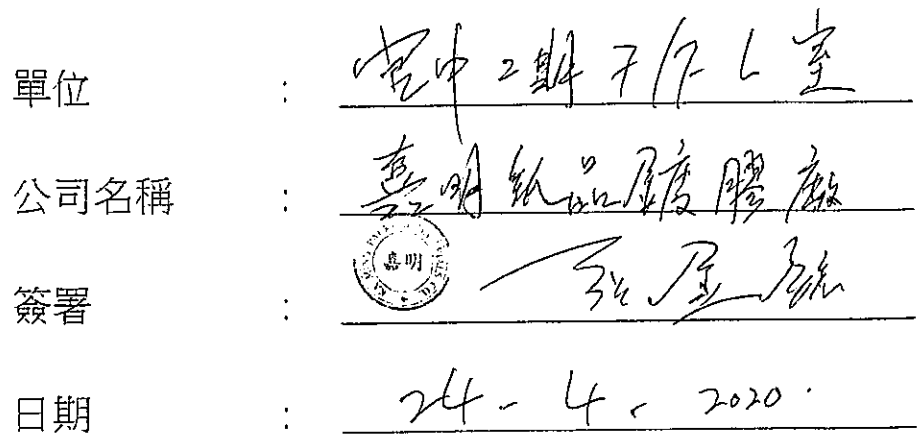 單位 : 宏中2期 7/F L室
公司名稱 : 嘉明紙品鍍膠廠
嘉明
簽署 :
日期 : 24-4-2020.